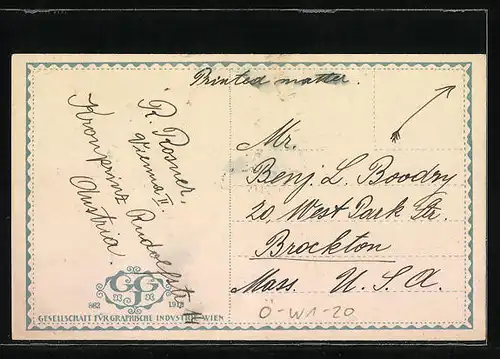 Printed matter.
R. Rosner,
Vienna II.
Kronprinz Rudolfstr.
Austria.
Mr.
Benj. L. Boodry
20, West Park Str.
Brockton
Mass. U. S. A.
GG
862 1912
GESELLSCHAFT FÜR GRAPHISCHE INDVSTRIE WIEN
Ö-W1-20